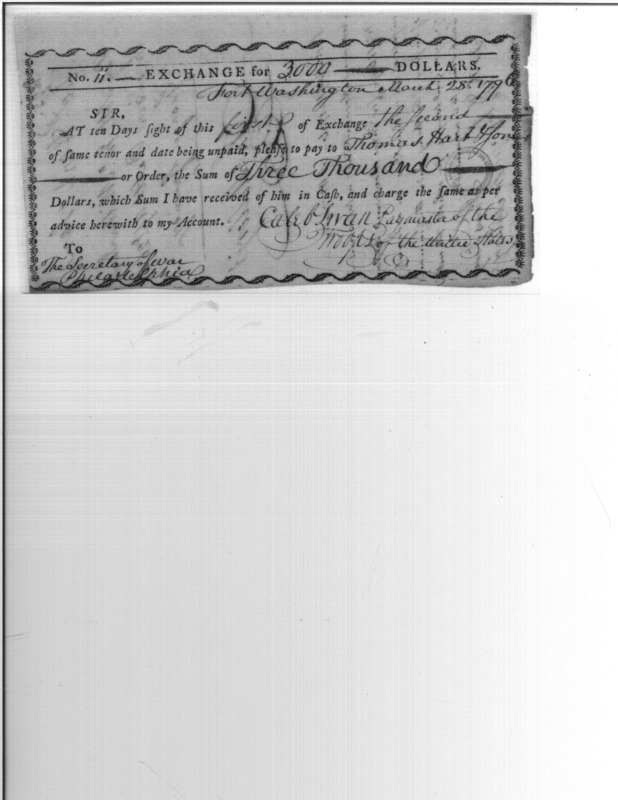 No. 11. — EXCHANGE for 3000 — DOLLARS.
Fort Washington March 28th 1796
SIR,
AT ten Days sight of this first of Exchange the second
of same tenor and date being unpaid, please to pay to Thomas Hart & Sons
or Order, the Sum of Three Thousand
Dollars, which Sum I have received of him in Cash, and charge the same as per
advice herewith to my Account. Caleb Swan Paymaster of the
Troops of the United States
To
The Secretary of War
Philadelphia